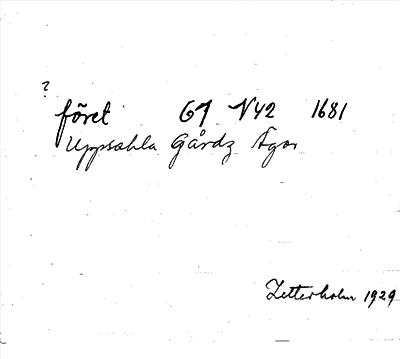 ?
föret G1 N42 1681
Uppsahla Gårdz Ägor
Zetterholm 1929